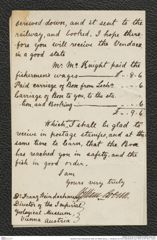 screwed down, and it sent to the
railway, and booked. I hope there
fore you will receive the Vendace
in a good state
Mr. McKnight paid the
fishermens wages — £ - 8 - 6
Paid carriage of Box from Loch
Carriage of Box to you, to the
and Booking - 
£ - 9 - 6
Which I shall be glad to
receive in postage stamps, and at
the same time to learn, that the Box
has reached you in safety, and the
fish in good order.
I am
Yours very truly
Dr. Franz Steindachner
Director of the Imperial
Zoological Museum,
Vienna Austria